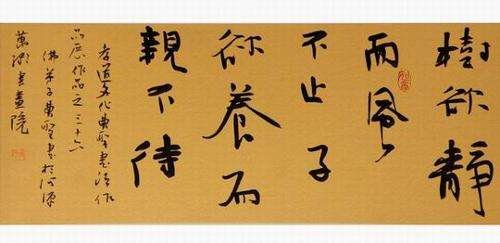 樹欲靜
而風
不止子
欲養而
親不待
孝道文化書法作
品展作品之三十六
佛弟子書於河源
書畫院